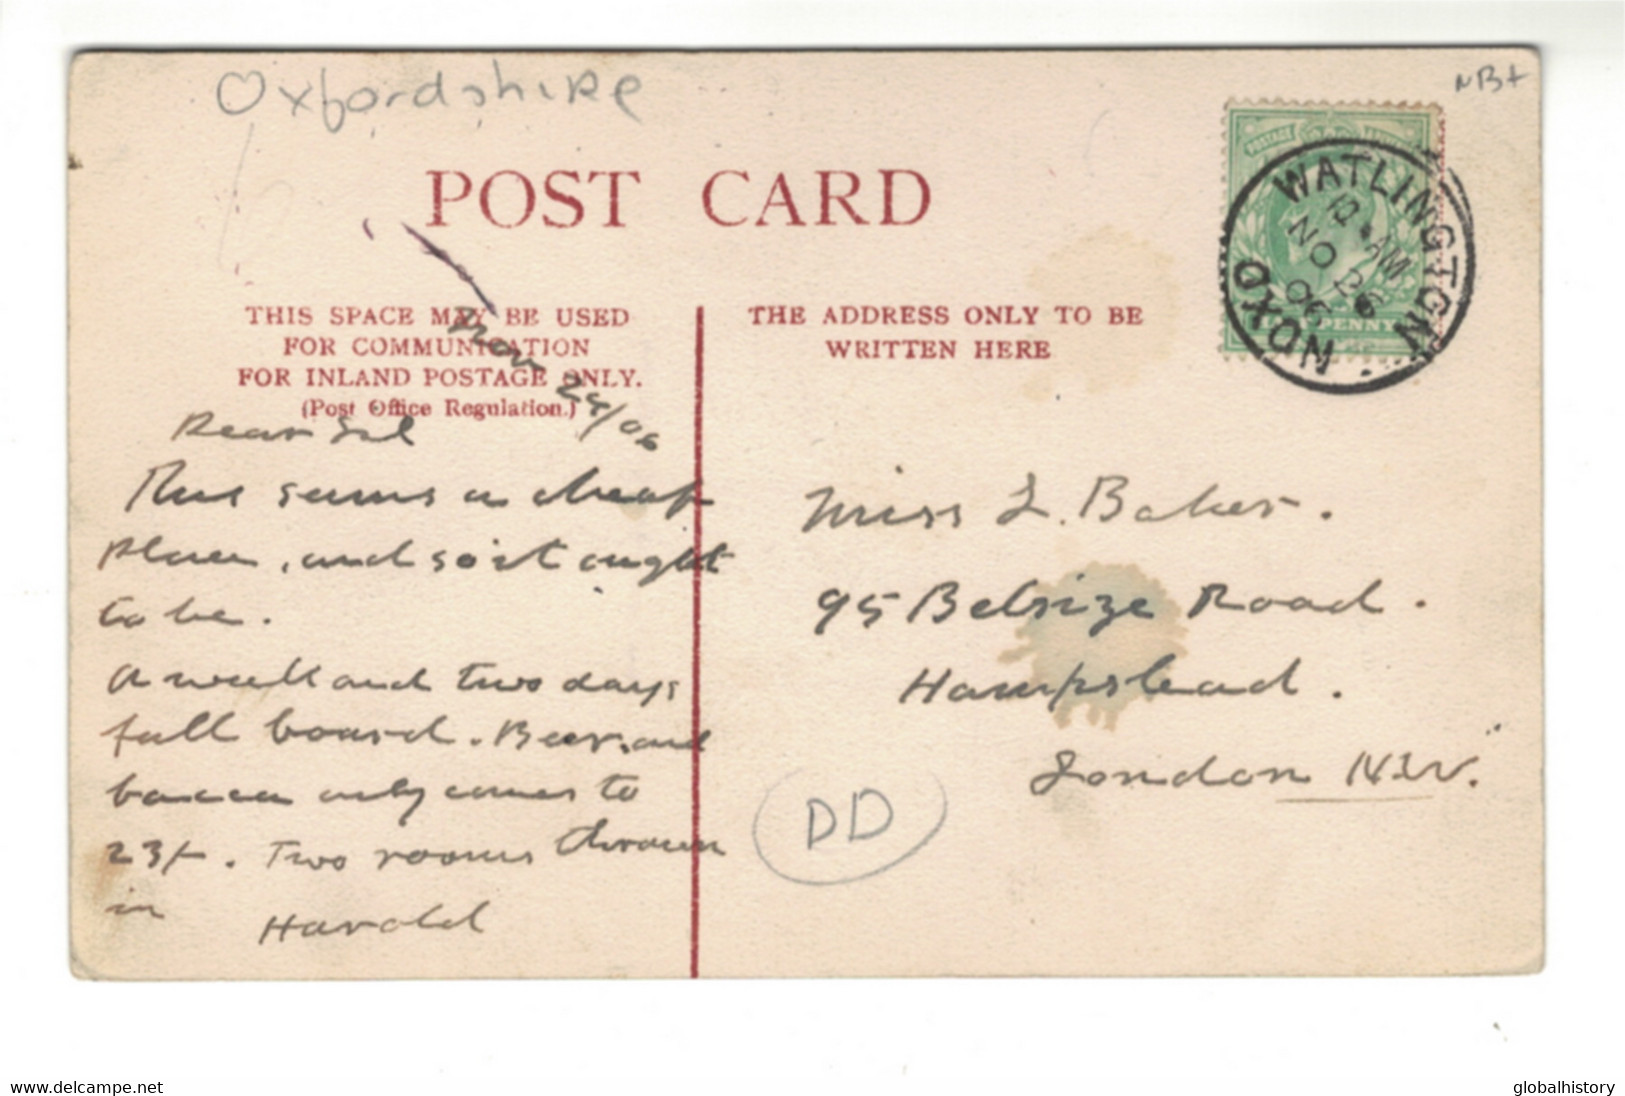 Oxfordshire
NB+
POST CARD
THIS SPACE MAY BE USED
FOR COMMUNICATION
FOR INLAND POSTAGE ONLY.
(Post Office Regulation.)
THE ADDRESS ONLY TO BE
WRITTEN HERE
WATLINGTON
12 AM
NO 26
06
OXON
POSTAGE
HALFPENNY
Nov 24/06
Dear
This seems a cheap
place, and so it ought
to be.
A week and two days
full board. Beer, and
bacca only comes to
23/-. Two rooms thrown
in
Harold
Miss L. Baker.
95 Belsize Road.
Hampstead.
London N.W.
DD
www.delcampe.net
globalhistory